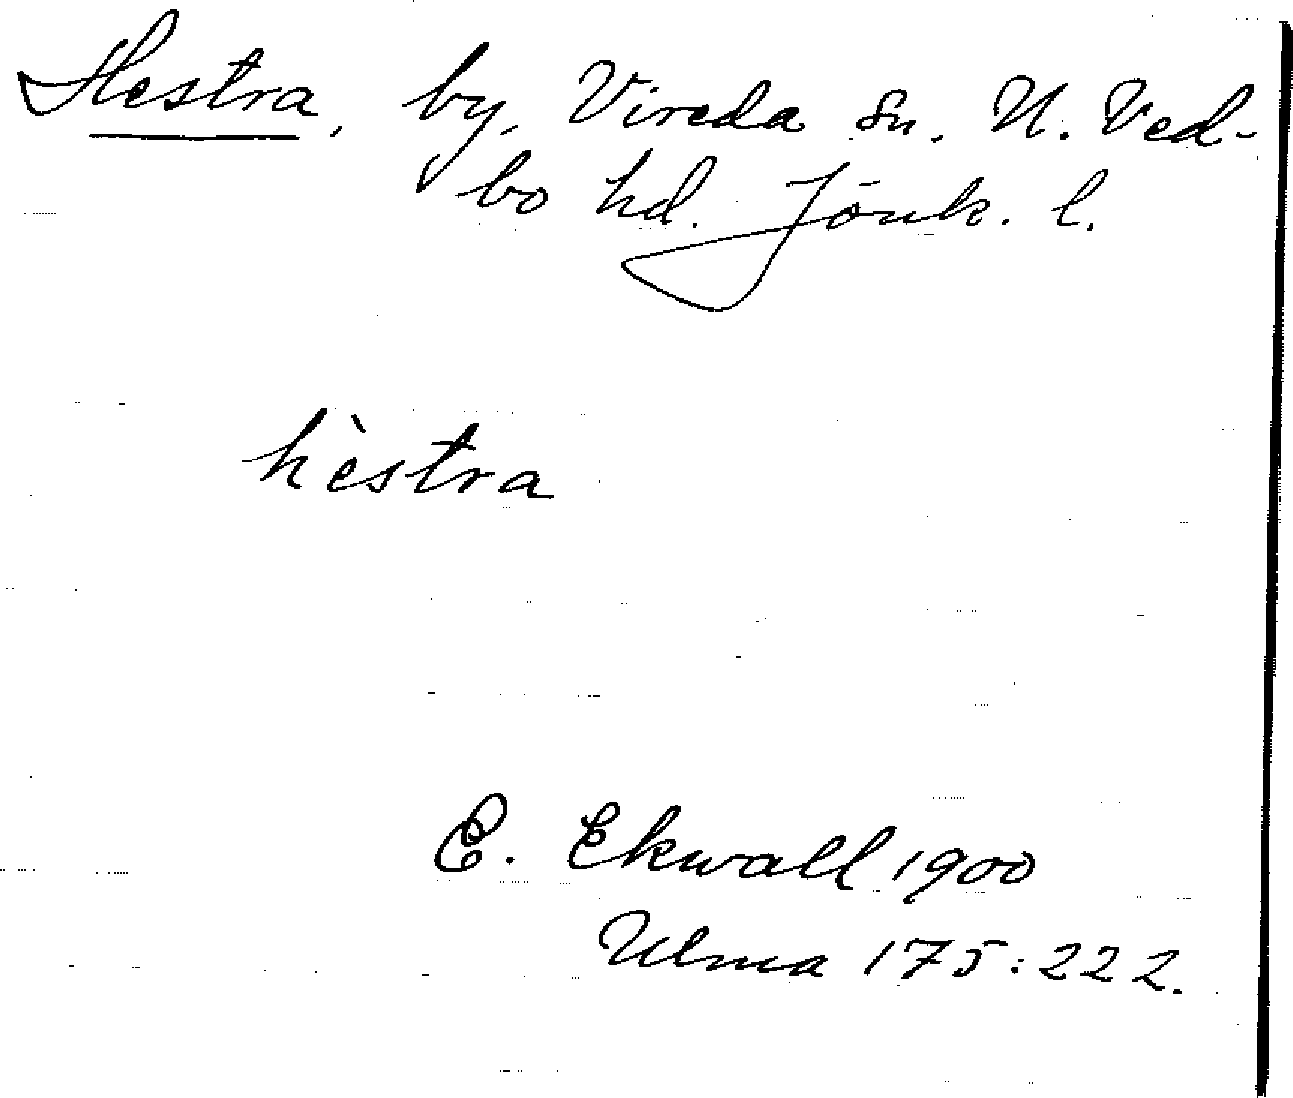 Hestra, by, Vireda sn. N. Ved-
bo hd. Jönk. l.
hèstra
E. Ekwall 1900
Ulma 175:222.